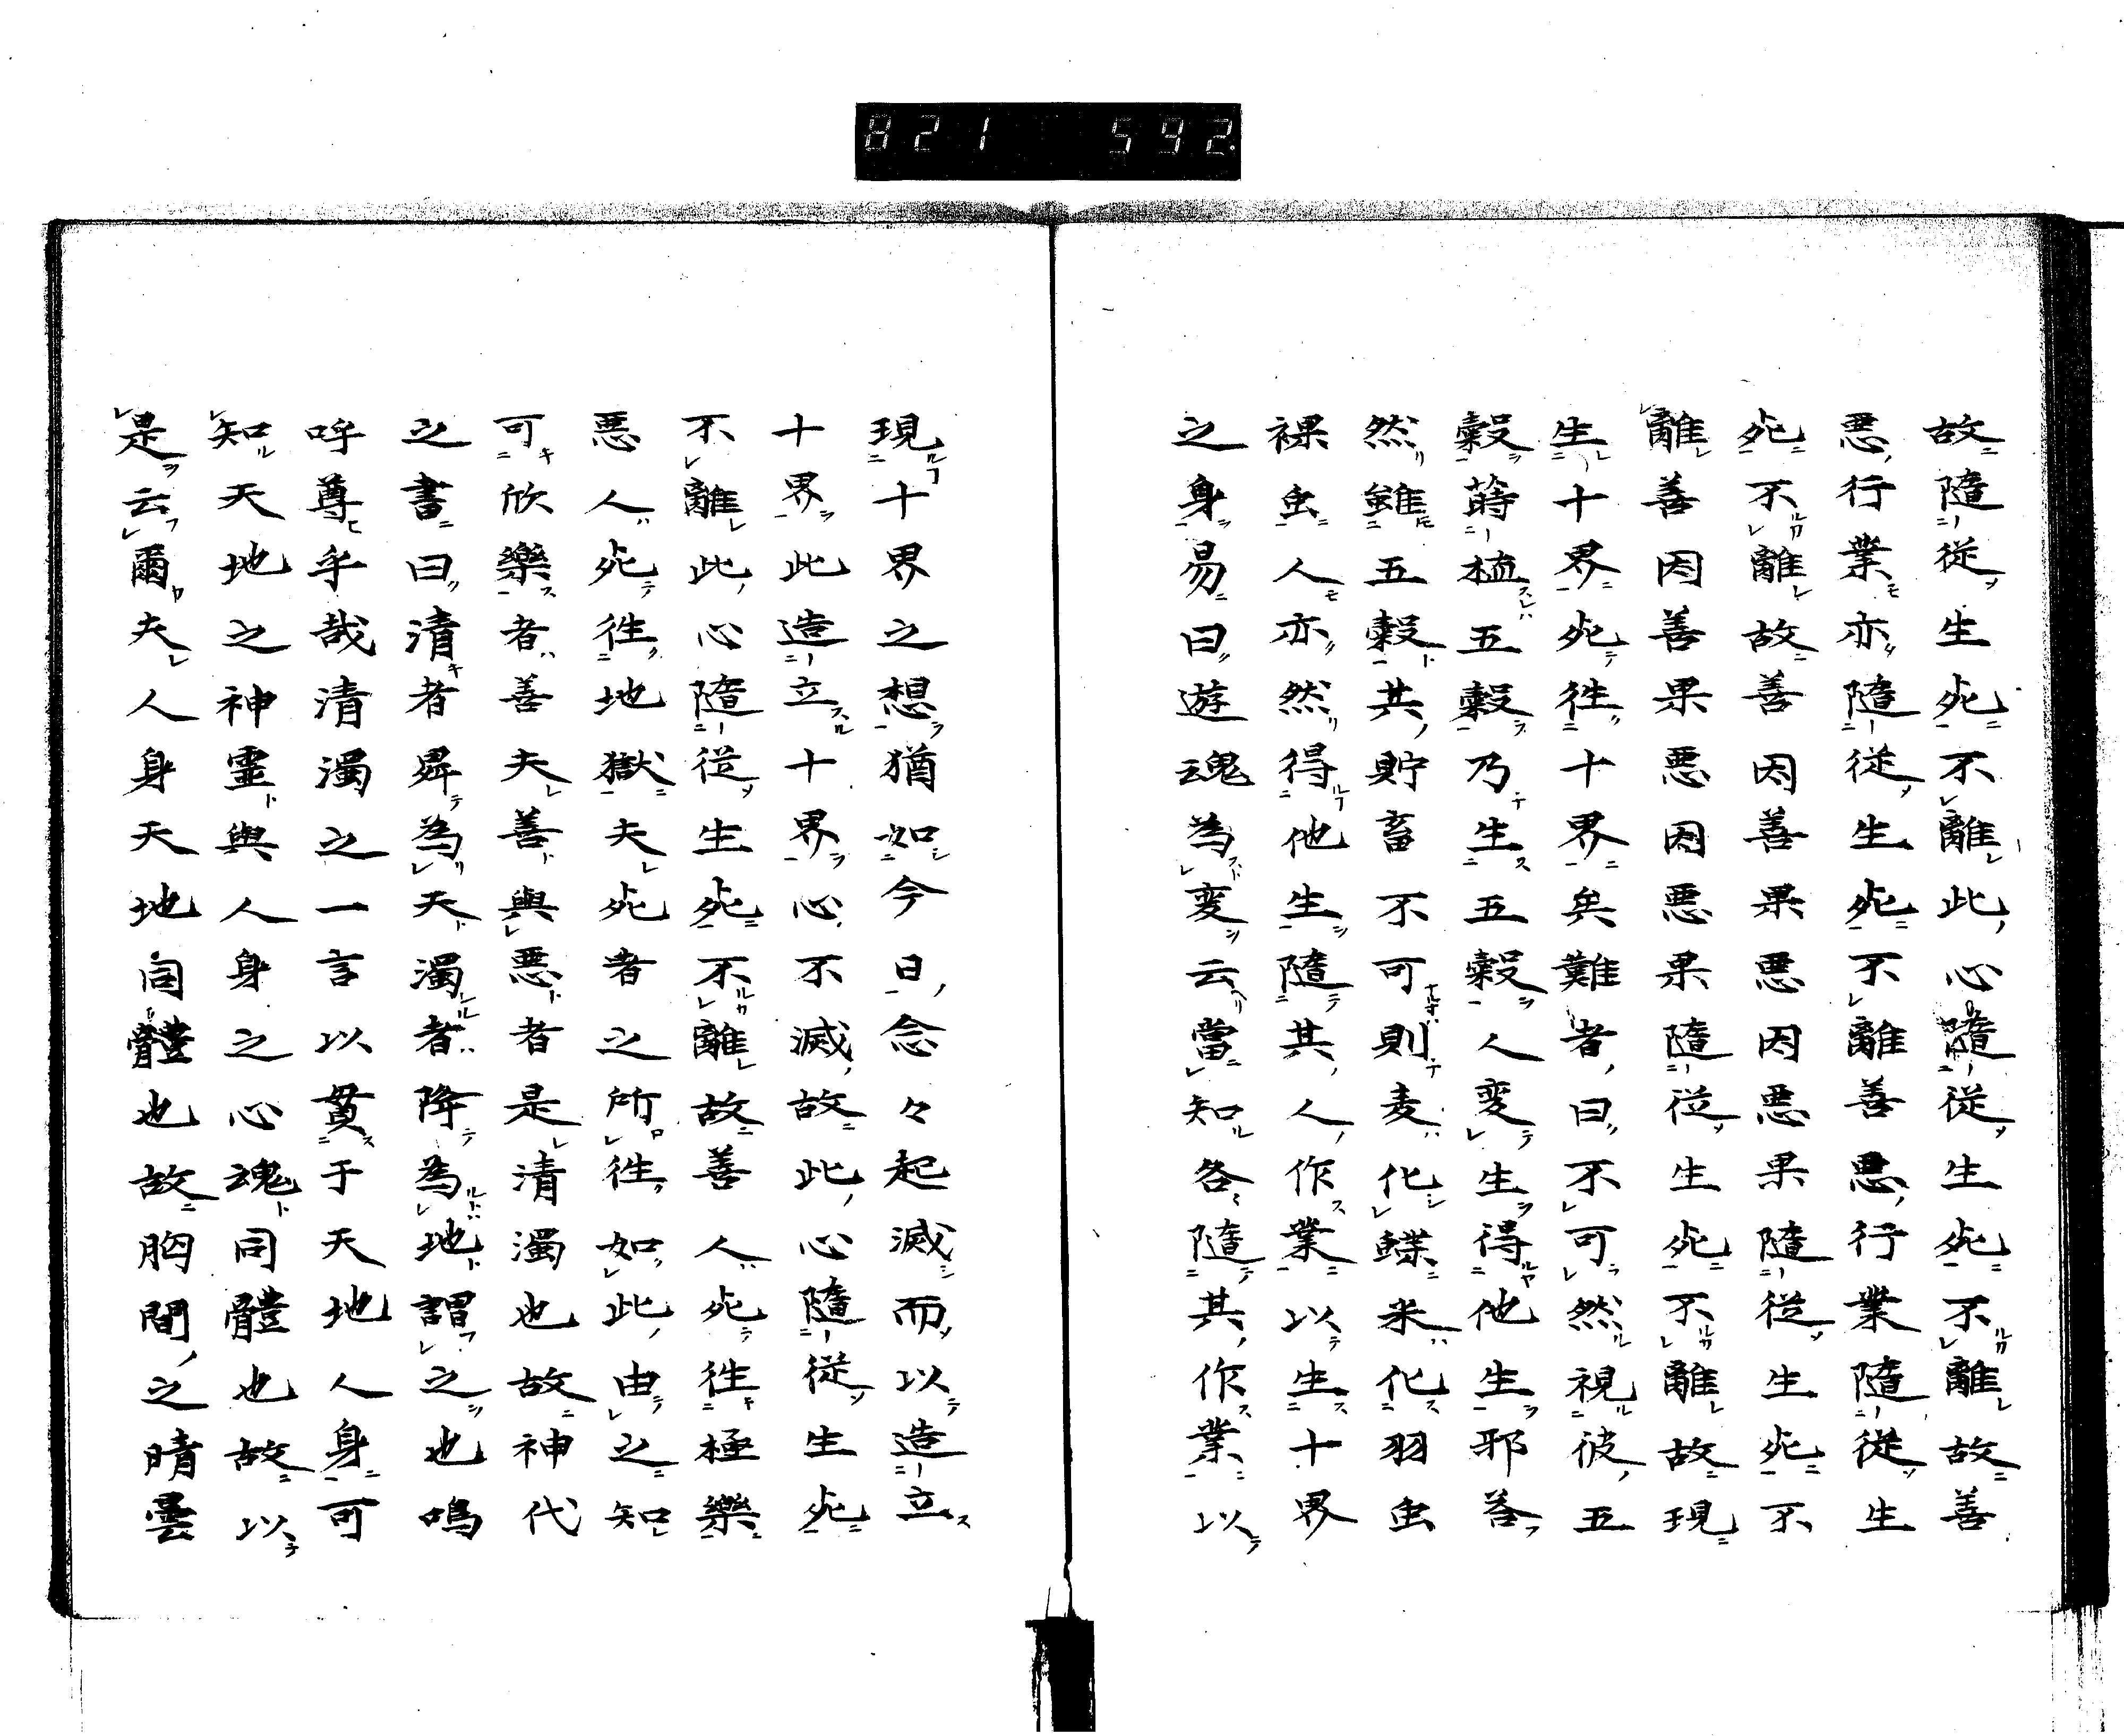 821 592.
故隨從生死不離此心隨從生死不離故善
惡行業亦隨從生死不離善惡行業隨從生
死不離故善因善果惡因惡果隨從生死不
離善因善果惡因惡果隨從生死不離故現
生十界死往十界矣難者曰不可然視彼五
穀蒔植五穀乃生五穀人変生得他生邪答
然雖五穀其貯畜不可則麦化蝶米化羽虫
裸虫人亦然得他生隨其人作業以生十界
之身易曰遊魂為変云當知各隨其作業以
現十界之想猶如今日念々起滅而以造立
十界此造立十界心不滅故此心隨從生死
不離此心隨從生死不離故善人死往極樂
惡人死往地獄夫死者之所往如此由之知
可欣樂者善夫善與惡者是清濁也故神代
之書曰清者昇為天濁者降為地謂之也嗚
呼尊乎哉清濁之一言以貫于天地人身可
知天地之神靈與人身之心魂同體也故以
是云爾夫人身天地同體也故胸間之晴曇